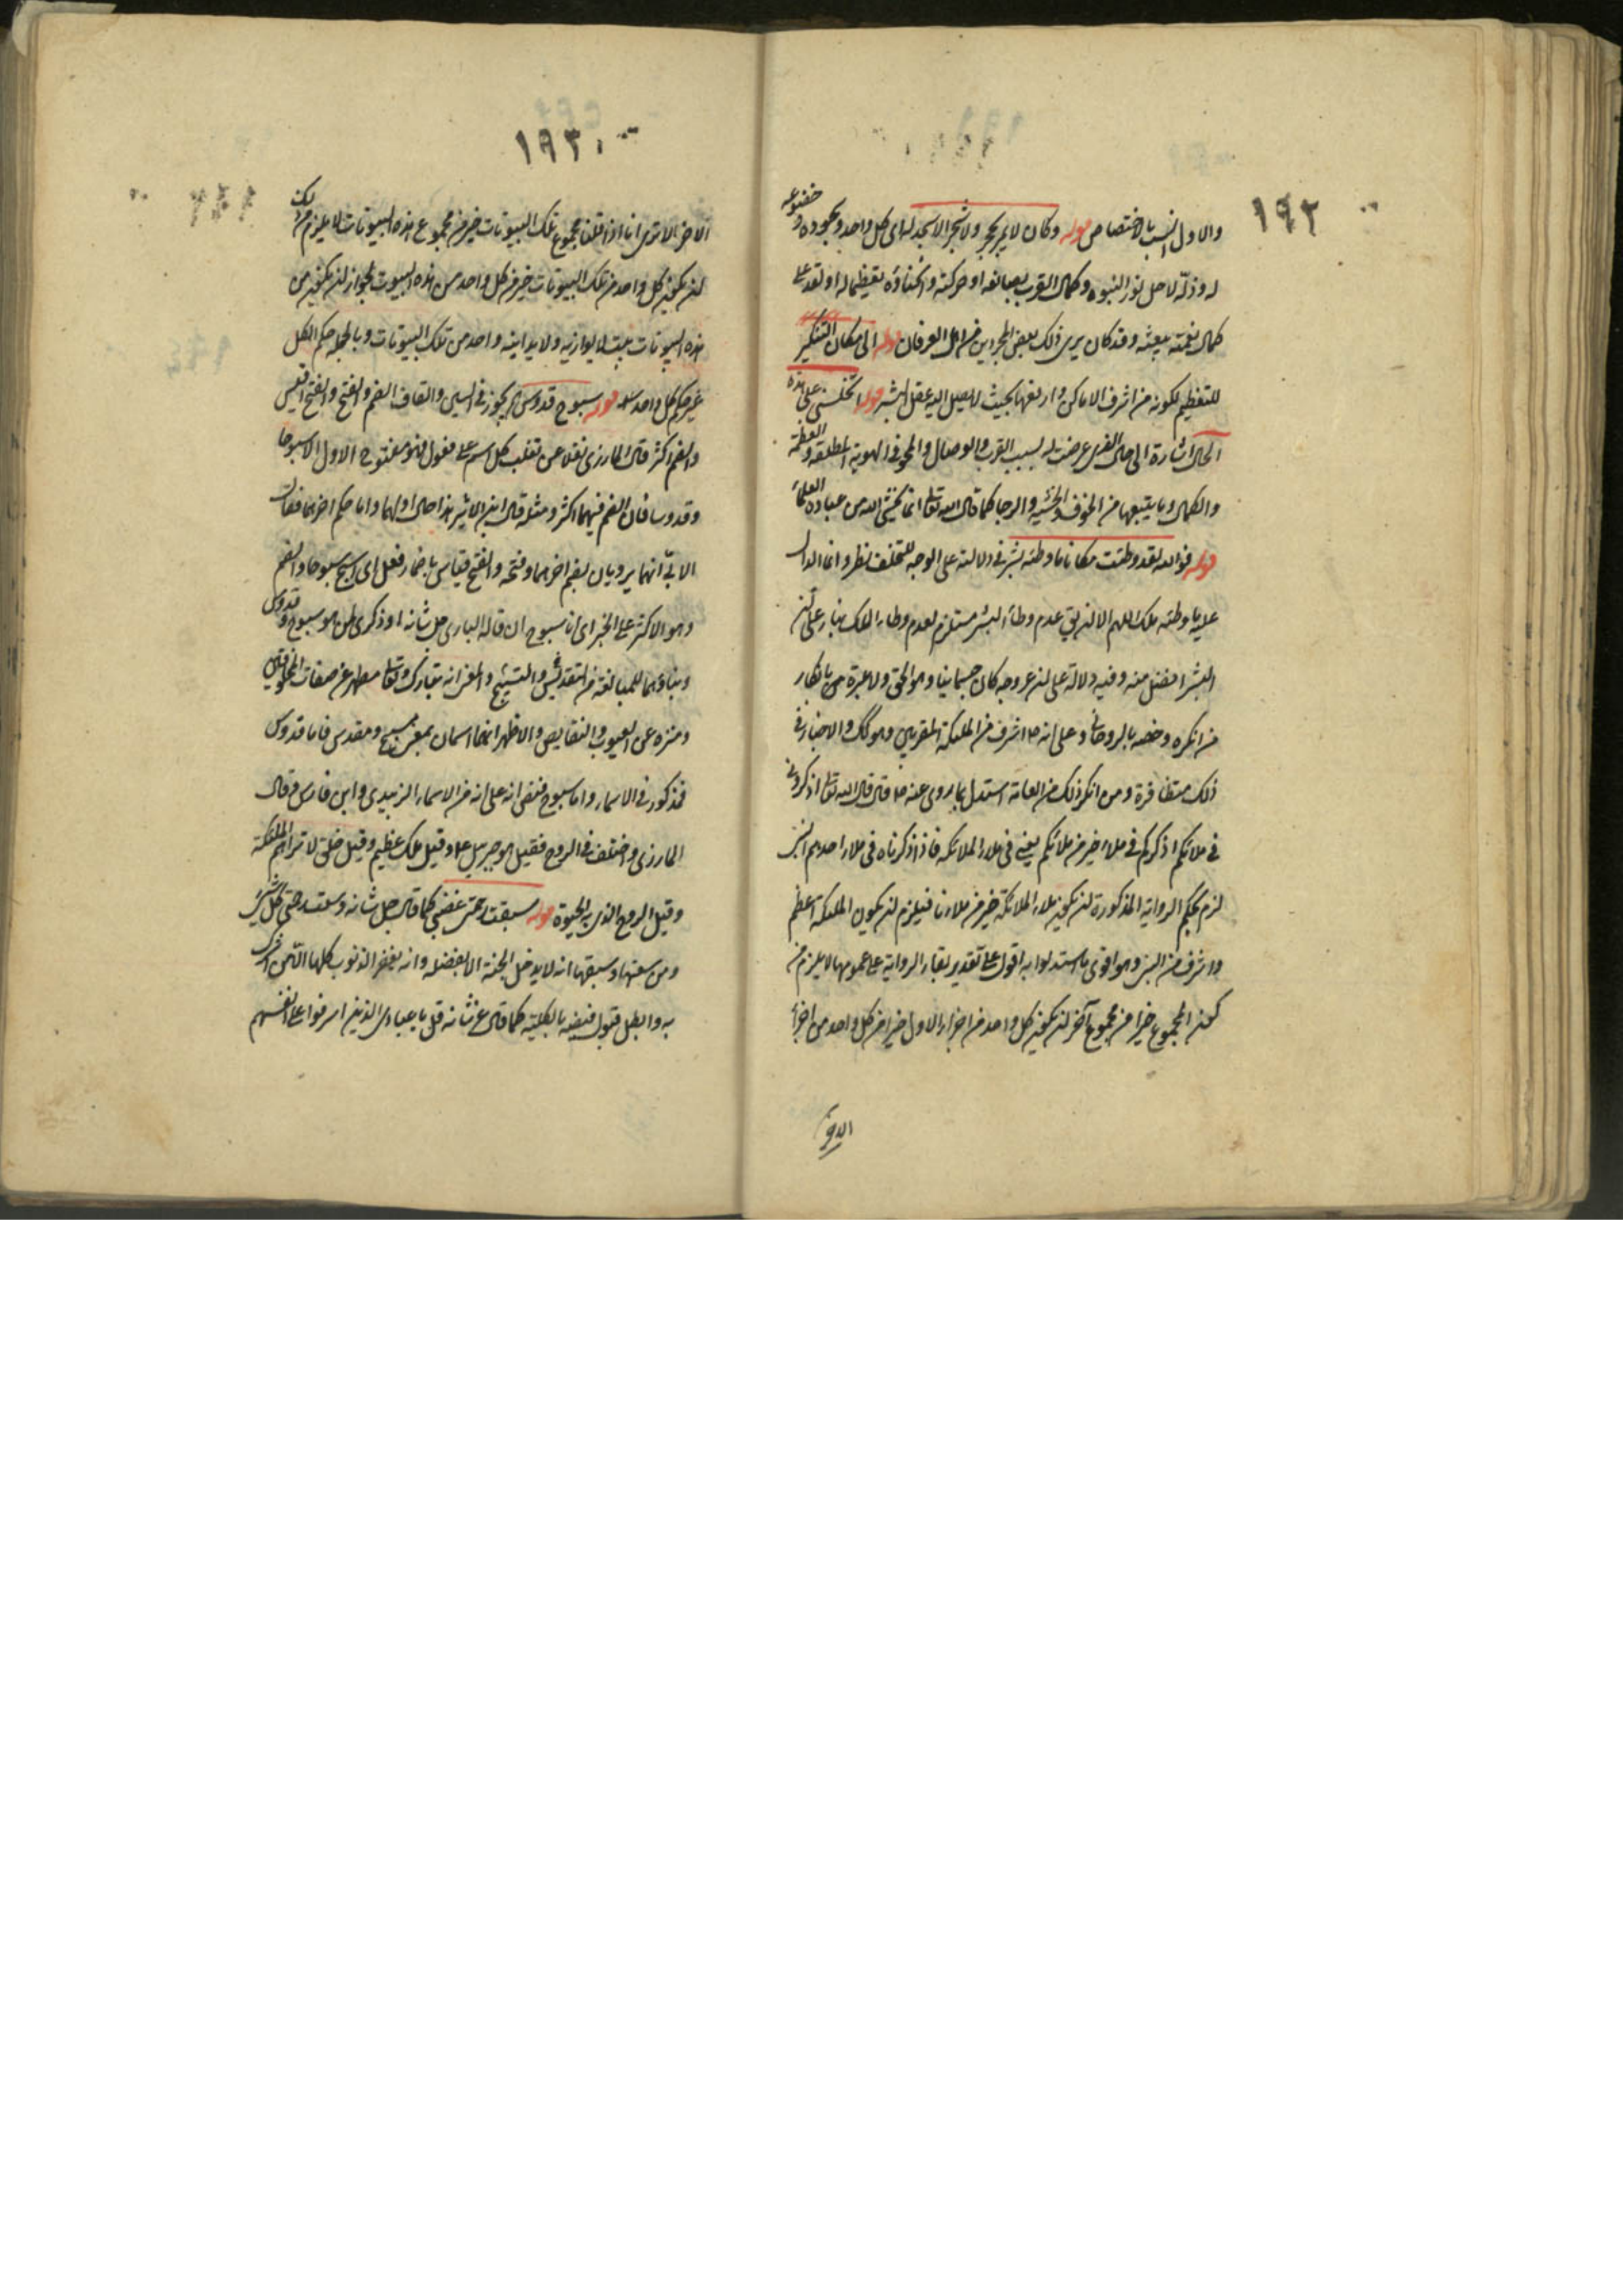 ١٩٢
والاول انسب بالاختصاص قوله وكان لا يمر بحجر ولا شجر الا سجد له اى كل واحد وسجوده خضوعه
له وذلته لاجل نور النبوة وكمال القرب بصانعه او حركته وانحناؤه تعظيما له او لله على
كمال نعمته ببعثه وقد كان يرى ذلك بعض المجردين من اهل العرفان قوله الى مكان التنكير
للتعظيم لكونه من اشرف الاماكن وارفعها بحيث لا يصل اليه عقل البشر قوله اتخلينى على هذه
الحال اشارة الى حال الفرى عرضت له بسبب القرب والوصال والمحو فى الهوية المطلقة والعظمة
والكمال وما يتبعها من الخوف والخشية والرجا كما قال الله تعالى انما يخشى الله من عباده العلماء
قوله فوالله لقد وطئت مكانا ما وطئه بشر فى دلالته على الوجه للتخلف نظر وانما الدال
عليه ما وطئه ملك اللهم الا ان يقال عدم وطأ البشر مستلزم لعدم وطاء الملك بناء على ان
البشر افضل منه وفيه دلالة على ان عروجه كان جسمانيا وهو الحق ولا عبرة بانكار
من انكره وخصه بالروحانى وعلى انه اشرف من الملئكة المقربين وهو كك والاخبار فى
ذلك متظافرة ومن انكر ذلك من العامة استدل بما روى عنه ص قال قال الله تعالى اذكرونى
فى ملائكم اذكركم فى ملاء خير من ملائكم يعنى فى ملاء الملائكة فاذا ذكرناه فى ملاء احدهم النبى
لزم بحكم الرواية المذكورة ان يكون ملاء الملائكة خير من ملاءنا فيلزم ان يكون الملئكة اعظم
واشرف من النبى وهو اقوى ما استدلوا به اقول على تقدير بقاء الرواية على عمومها لا يلزم من
كون المجموع خيرا من مجموع آخر ان يكون كل واحد من اجزاء الاول خيرا من كل واحد من اجزاء
١٩٣
الاخر الا ترى انا اذا قلنا مجموع تلك البيوتات خير من مجموع هذه البيوتات لا يلزم من ذلك
ان يكون كل واحد من تلك البيوتات خير من كل واحد من هذه البيوت لجواز ان يكون من
هذه البيوتات بيت لا يوازيه ولا يدانيه واحد من تلك البيوتات وبالجملة حكم الكل
غير حكم كل واحد قوله سبوح قدوس يجوز فى السين والقاف الضم والفتح والفتح اقيس
والضم اكثر قال المازرى نقلا عن ثعلب كل اسم على فعول فهو مفتوح الاول الا سبوحا
وقدوسا فان الضم فيهما اكثر ومثله قال ابن الاثير هذا حال اولهما واما حكم اخرهما فقال
الابى انهما يرويان بضم اخرهما وفتحه والفتح قياسى باضمار فعل اى اسبح سبوحا والضم
وهو الاكثر على الخبر اى انا سبوح ان قاله البارى جل شانه او ذكرى لمن هو سبوح قدوس
وبناؤهما للمبالغة من التقديس والتسبيح والمعنى انه تبارك وتعالى مطهر عن صفات المخلوقين
ومنزه عن العيوب والنقايص والاظهر انهما اسمان بمعنى مسبح ومقدس فاما قدوس
فمذكور فى الاسماء واما سبوح فنص انه على انه من الاسماء الزبيدى وابن فارس وقال
المازرى واختلف فى الروح فقيل هو جبرئيل ع وقيل ملك عظيم وقيل خلق لا تراهم الملئكة
وقيل الروح الذى به الحيوة قوله سبقت رحمتى غضبى كما قال جل شانه وسعت رحمتى كل شئ
ومن سعتها وسبقها انه لا يدخل الجنة الا بفضله وانه يغفر الذنوب كلها الا لمن اشرك
به وابطل قبول فيضه بالكلية كما قال عز شانه قل يا عبادى الذين اسرفوا على انفسهم